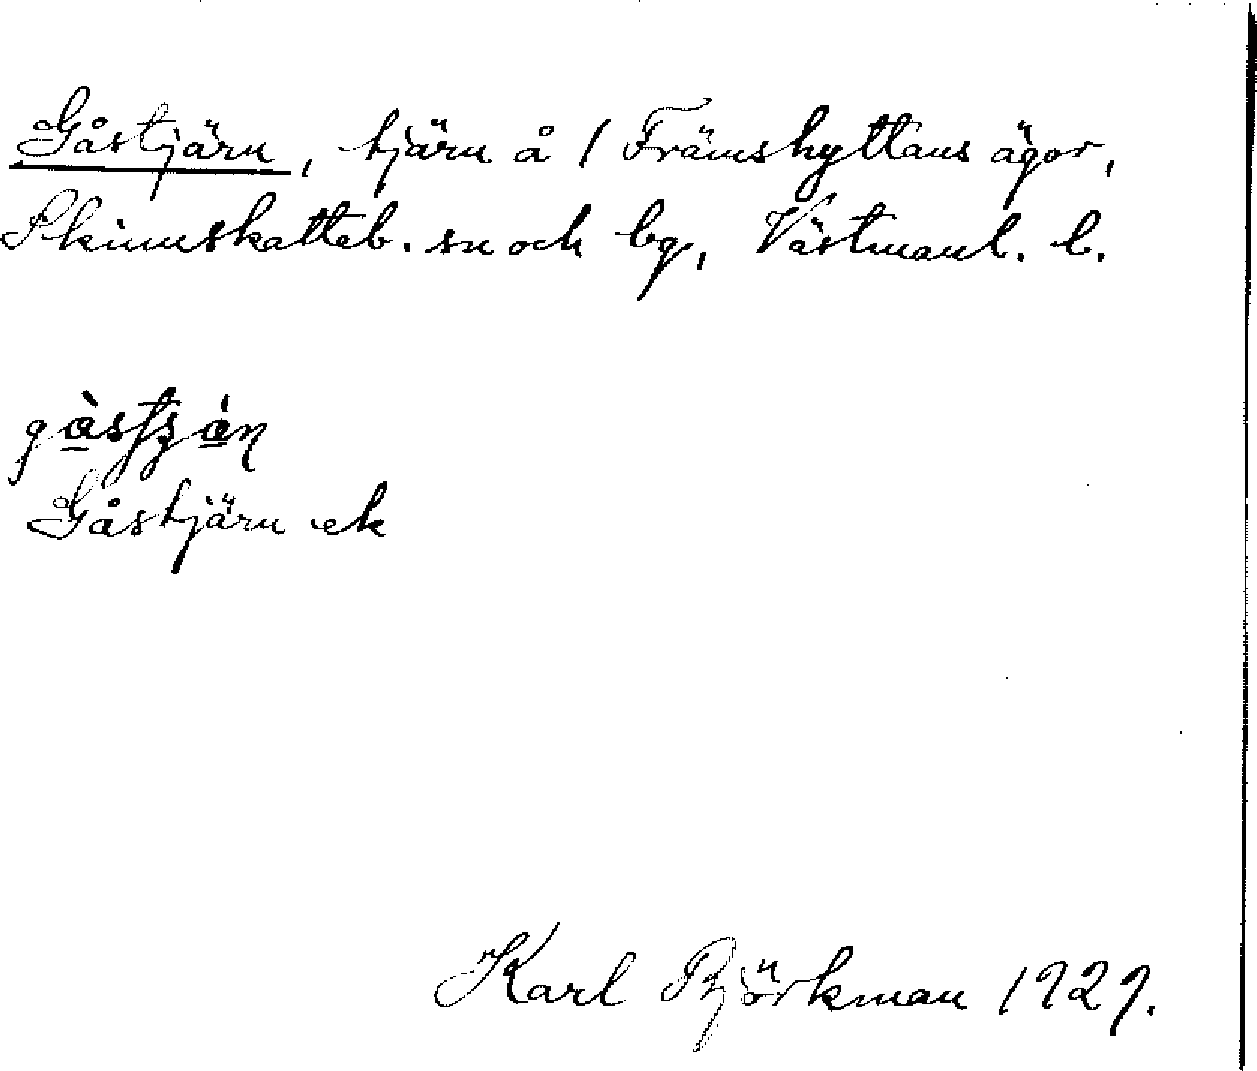 Gåstjärn, tjärn å / Främshyttans ägor,
Skinnskatteb. sn och bg, Västmanl. l.
Gåstjärn ek
Karl Björkman 1929.